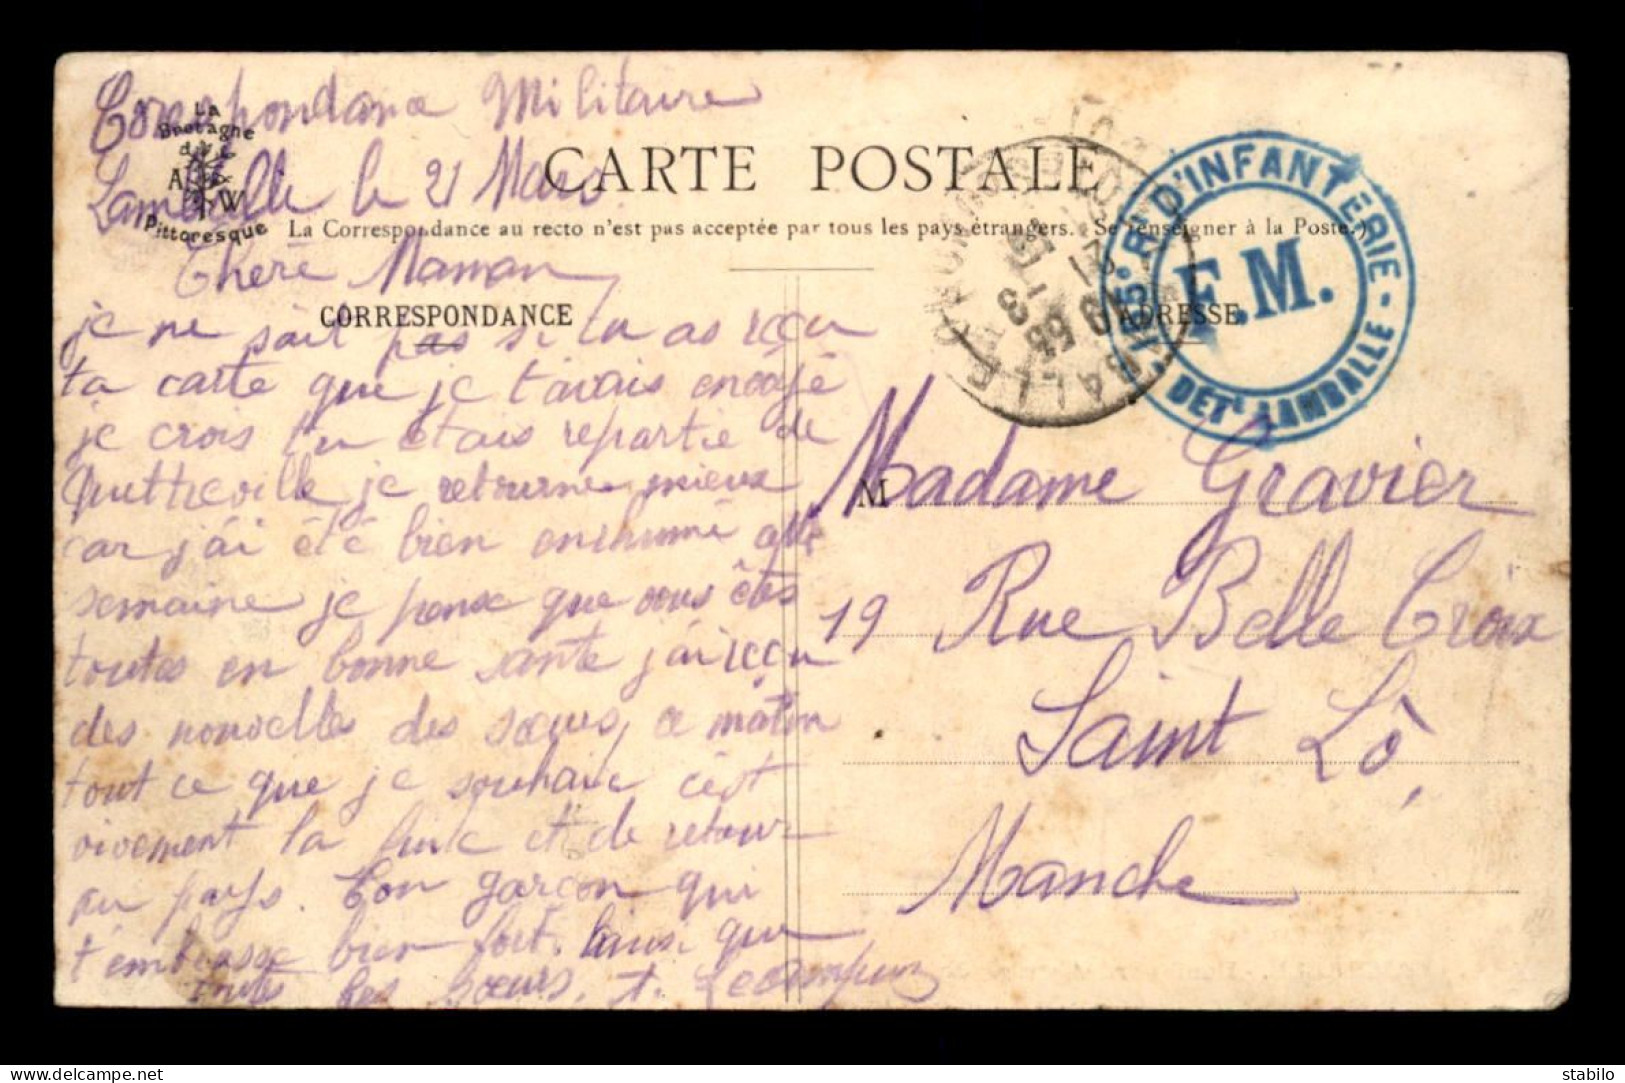 Correspondance Militaire
La
Bretagne
A W
Pittoresque
Lamballe le 21 Mars
CARTE POSTALE
La Correspondance au recto n'est pas acceptée par tous les pays étrangers. (Se renseigner à la Poste.)
CORRESPONDANCE
ADRESSE
135e Rt D'INFANTERIE - DETt LAMBALLE
F.M.
Chere Maman
je ne sait pas si tu as reçu
ta carte que je t'avais envoyé
je crois tu étais repartie de
Quettreville je retourne mieux
car j'ai été bien enrhumé cette
semaine je pense que vous êtes
toutes en bonne sante j'ai reçu
des nouvelles des sœurs, ce matin
tout ce que je souhaite c'est
vivement la fin et de retour
au pays. Ton garçon qui
t'embrasse bien fort. ainsi que
toutes les sœurs. A.
M
Madame Gravier
19 Rue Belle Croix
Saint Lô,
Manche
stabilo